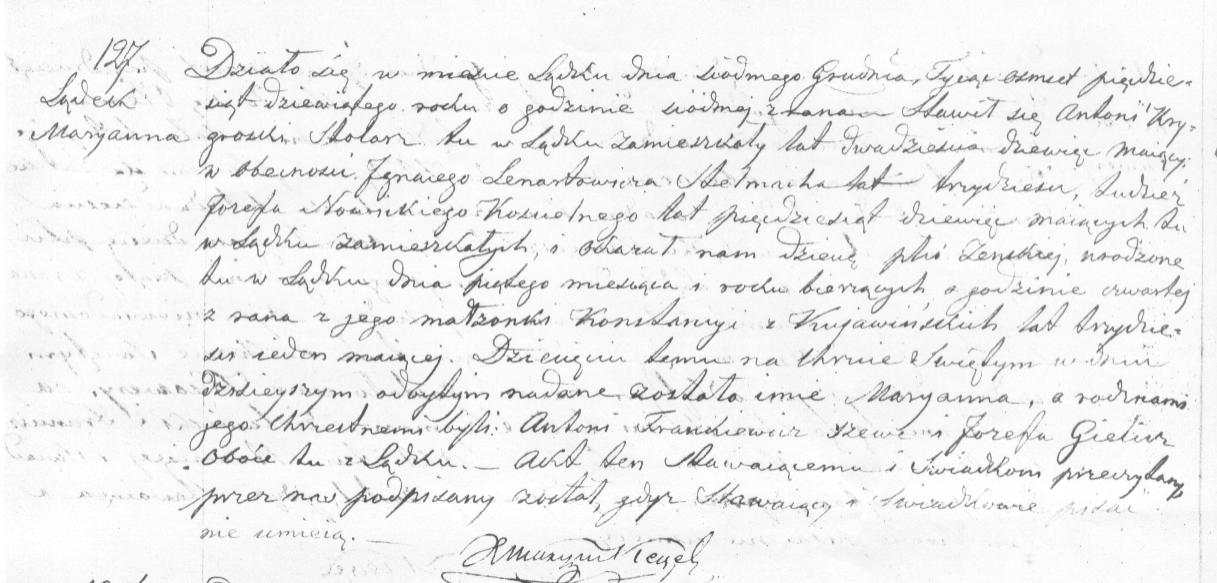 127.
Lądek
Maryanna
Działo się w mieście Lądku dnia siodmego Grudnia, Tysiąc osmset pięćdzie-
siąt dziewiątego roku o godzinie siódmej z rana Stawił się Antoni Kry-
groski Stolarz tu w Lądku zamieszkały lat dwadzieścia dziewięć maiący
w obecności Jgnacego Lenartowicza Stelmacha lat trzydzieści, tudzież
Jozefa Nowickiego Kościelnego lat pięćdziesiąt dziewięć maiących tu
w Lądku zamieszkałych, i okazał nam dziecię płci żenskiej, urodzone
tu w Lądku dnia piątego miesiąca i roku bieżących o godzinie czwartej
z rana z jego małżonki Konstancyi z Kujawińskich lat trzydzie-
ści ieden maiącej. Dziecięciu temu na Chrzcie Swiętym w dniu
dzisieyszym odbytym nadane zostało imie Maryanna, a rodzicami
jego Chrzestnemi byli: Antoni Frankiewicz szewc i Jozefa
oboie tu z Lądku. — Akt ten stawaiącemu i Swiadkom przeczytany
przez nas podpisany został, gdyż Stawaiący i Swiadkowie pisać
nie umieią. —